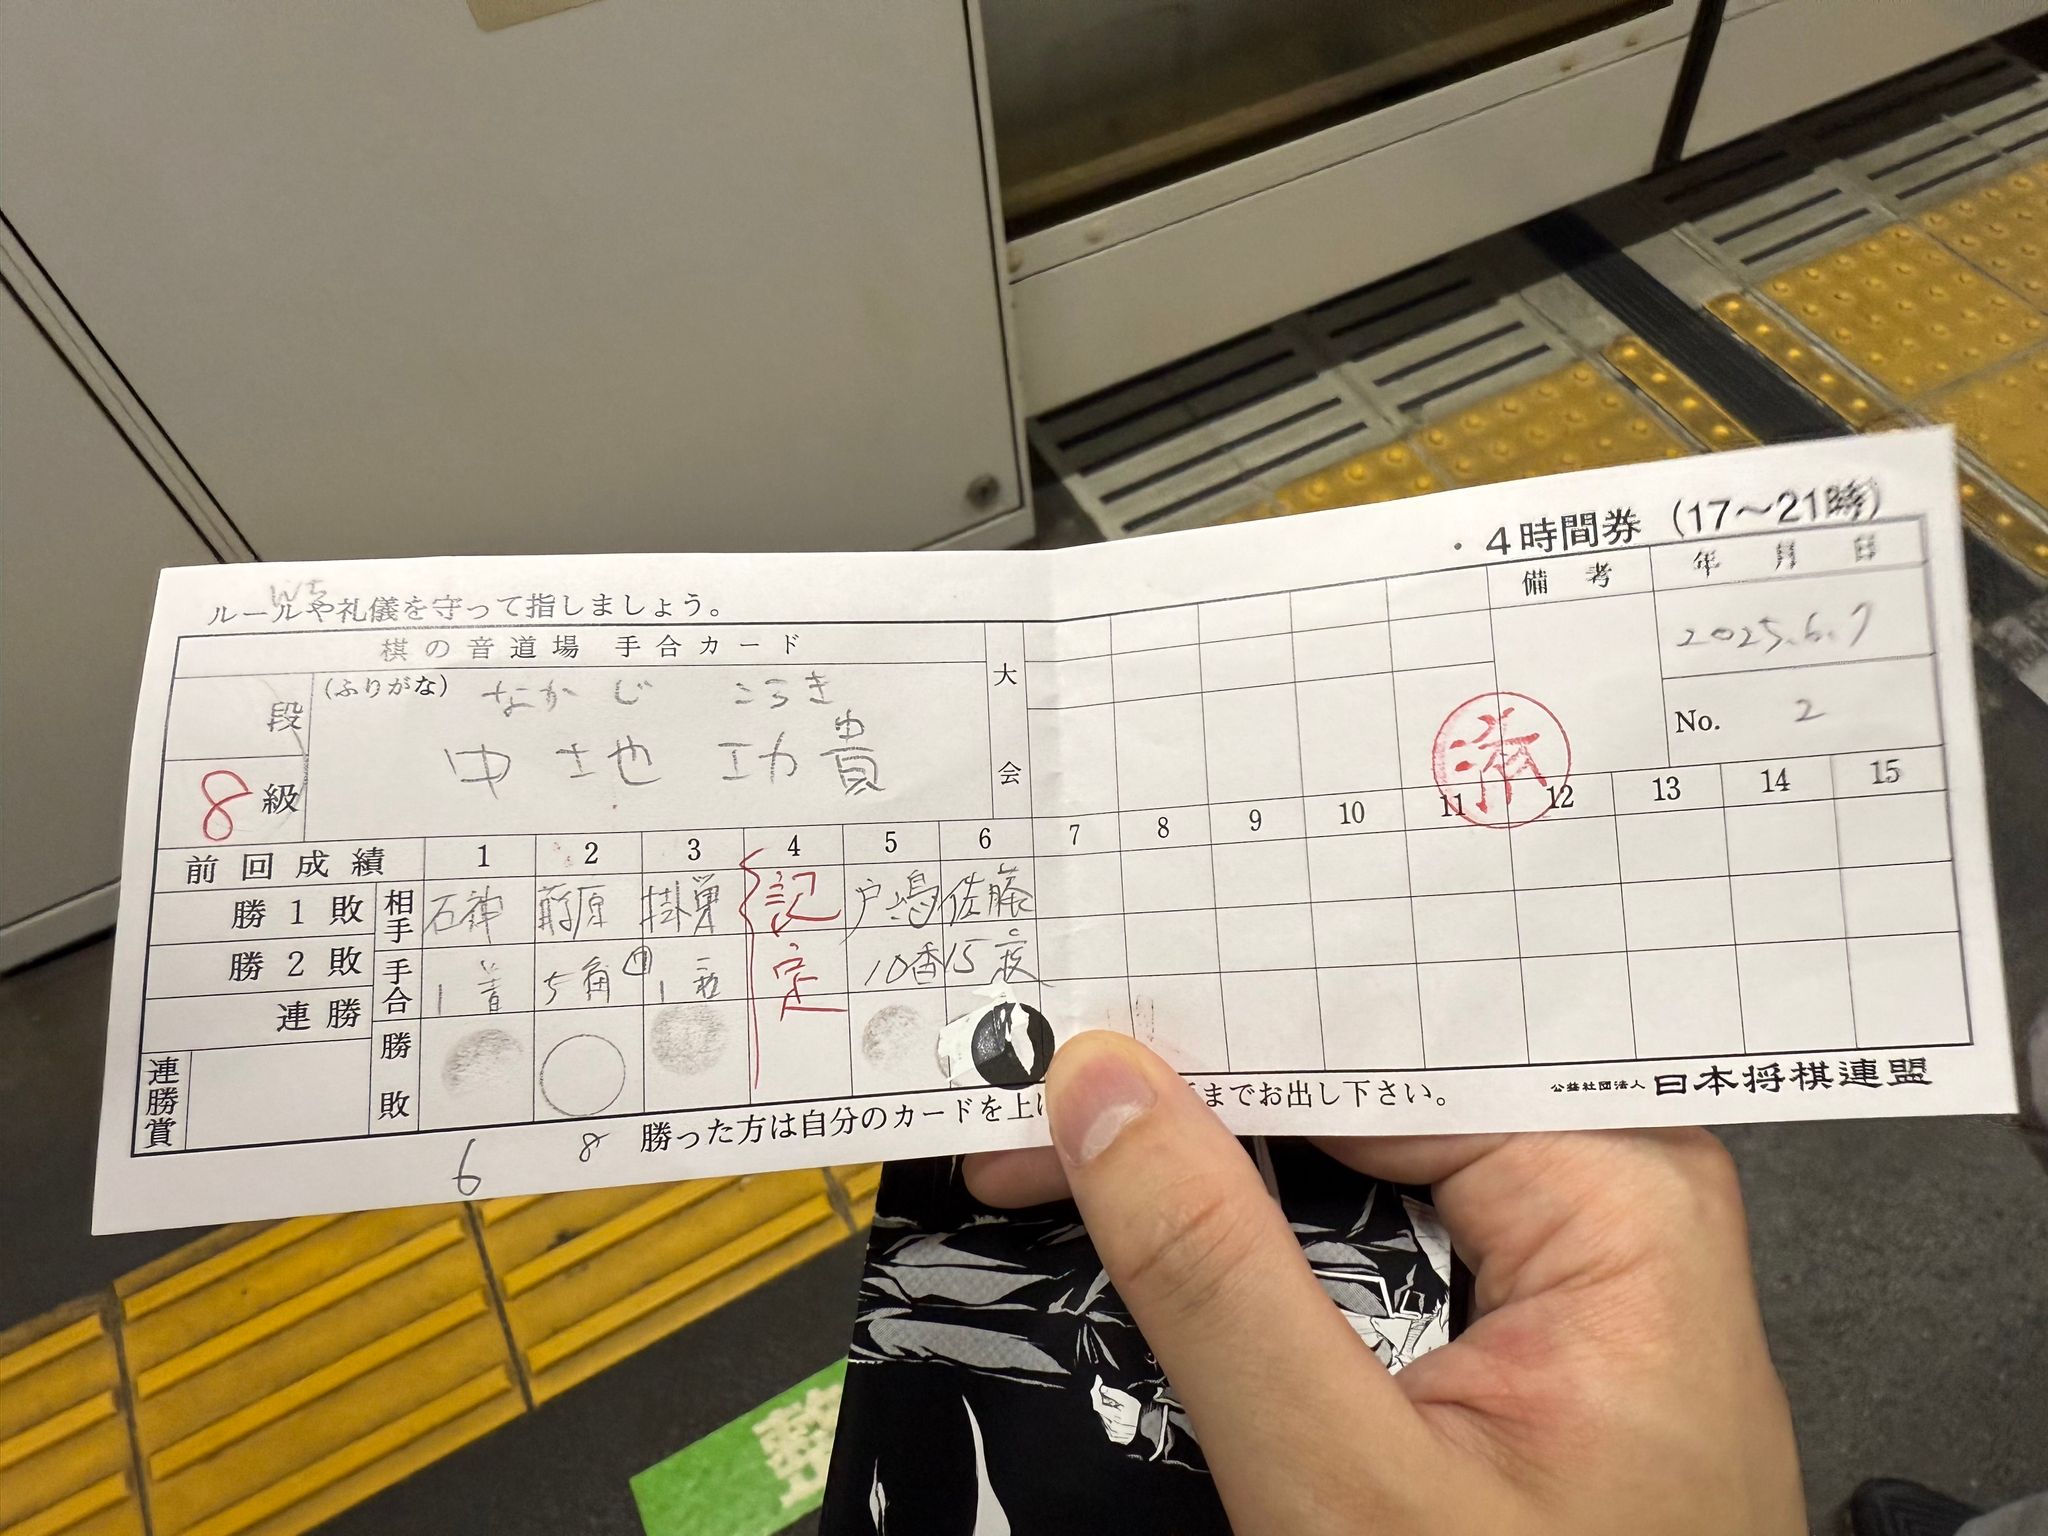 ・4時間券 (17～21時)
ルールや礼儀を守って指しましょう。
棋の音道場 手合カード
大会
備考
年 月 日
2025.6.7
No. 2
段
8級
(ふりがな) なかじ こうき
中地 功貴
済
前回成績 1 2 3 4 5 6 7 8 9 10 11 12 13 14 15
勝1敗
勝2敗
連勝
連勝賞
相手 石神 藤原 掛巣 認定 戸嶋 佐藤
手合 5角 10香
勝敗
勝った方は自分のカードを上に までお出し下さい。
公益社団法人 日本将棋連盟
6 8